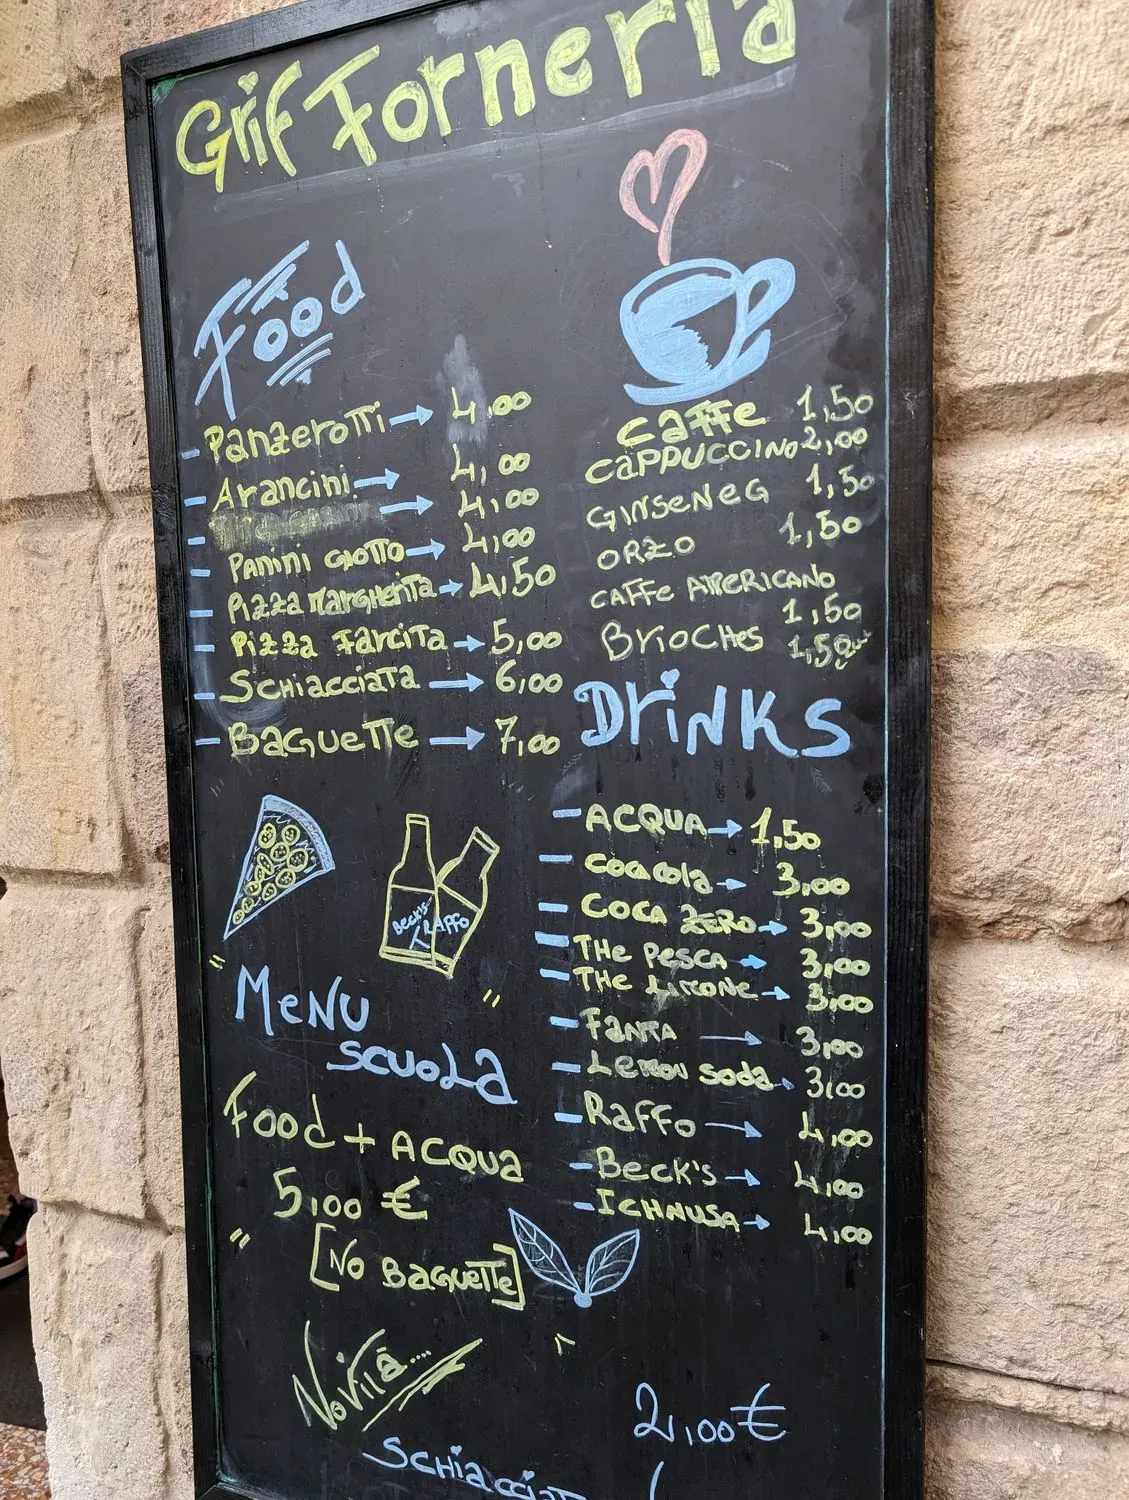 Grif Forneria
Food
- Panzerotti → 4,00
- Arancini → 4,00
- → 4,00
- Panini Giotto → 4,00
- Pizza Margherita → 4,50
- Pizza Farcita → 5,00
- Schiacciata → 6,00
- Baguette → 7,00
Caffe 1,50
CAPPUCCINO 2,00
GINSENEG 1,50
ORZO 1,50
CAFFE AMERICANO
1,50
BRIOCHES 1,50
DRINKS
- ACQUA → 1,50
- Cocacola → 3,00
- Coca ZERO → 3,00
- THe Pesca → 3,00
- THe Limone → 3,00
- Fanta → 3,00
- Lemon soda → 3,00
- Raffo → 4,00
- Beck's → 4,00
- ICHNUSA → 4,00
Beck's
RAFFO
MeNU
SCUOLA
Food + ACQUA
5,00 €
[No Baguette]
Novità....
2,00 €